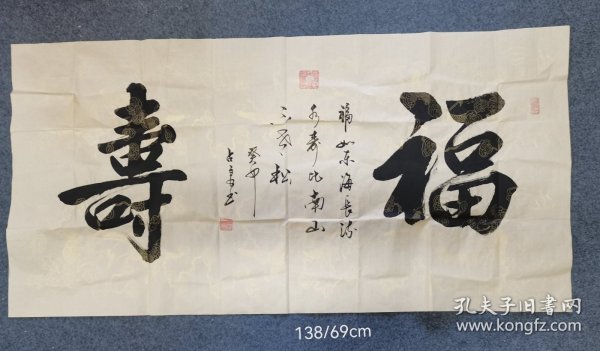 福
壽
福如东海长流
水寿比南山
不老松
书
138/69cm
孔夫子旧书网
www.kongfz.com